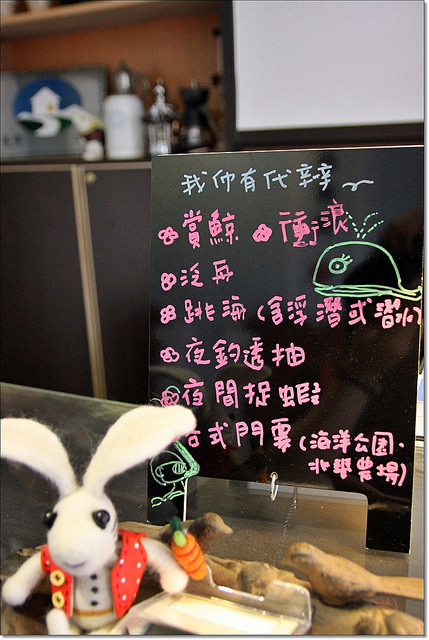 我们有代辦~
賞鯨 衝浪
泛舟
跳海(含浮潛或潛水)
夜釣透抽
夜間捉蝦
各式門票(海洋公园、
兆豐農場)